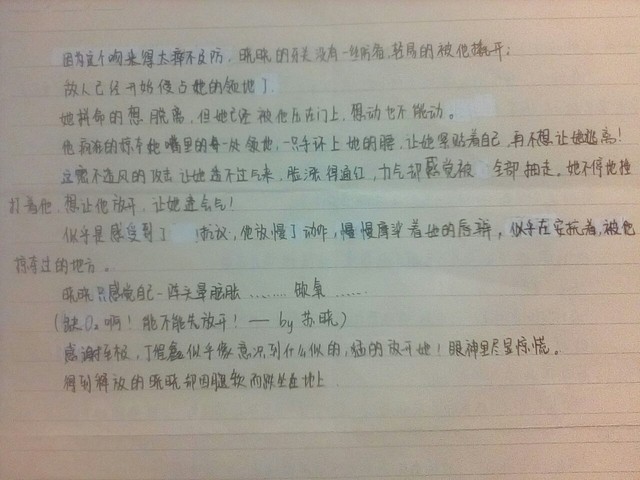 因为这个吻来得太猝不及防，晓晓的牙关没有一丝防备，轻易的被他撬开；
敌人已经开始侵占她的领地了
她拼命的想脱离，但她已经被他压在门上，想动也不能动。
他疯狂的掠夺她嘴里的每一处领地，一只手环上她的腰，让她紧贴着自己，再不想让她逃离！
立密不透风的攻击让她透不过气来，脸涨得通红，力气却感觉被 全部抽走。她不停地捶
打着他，想让他放开，让她透会气！
似乎是感受到了 抗议，他放慢了动作，慢慢摩挲着她的唇瓣，似乎在安抚着，被他
掠夺过的地方。
晓晓只感觉自己一阵头晕脑胀………缺氧……
（缺O₂啊！能不能先放开！— by 苏晓）
感谢至极，丁程鑫似乎像意识到什么似的，猛的放开她！眼神里尽显惊慌。
得到解放的晓晓却因腿软而跌坐在地上